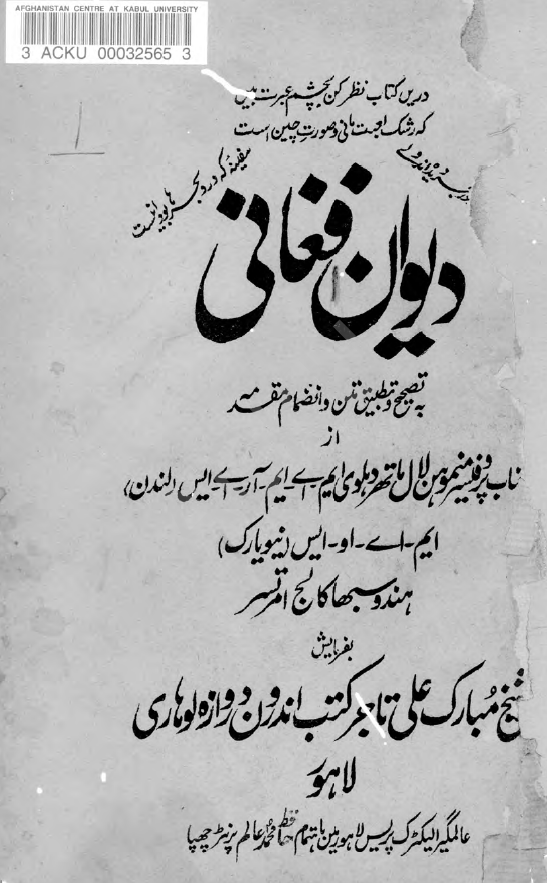 AFGHANISTAN CENTRE AT KABUL UNIVERSITY
3 ACKU 00032565 3
دریں کتاب نظر کن بچشم عبرت بیں
که رشک لعبت مانی و صورت چین است
سفینۂ که درو بحرها بود اینست
دیوان فغانی
به تصحیح و تطبیق متن و انضمام مقدمه
از
ناب پروفیسر منموهن لال ماتھر دہلوی ایم-اے-ایم-آر-اے-ایس (لندن)
ایم-اے-او-ایس (نیویارک)
ہندو سبھا کالج امرتسر
بفرمایش
شیخ مبارک علی تاجر کتب اندرون دروازہ لوہاری
لاہور
عالمگیر الیکٹرک پریس لاہور میں باہتمام حافظ محمد عالم پرنٹر چھپا